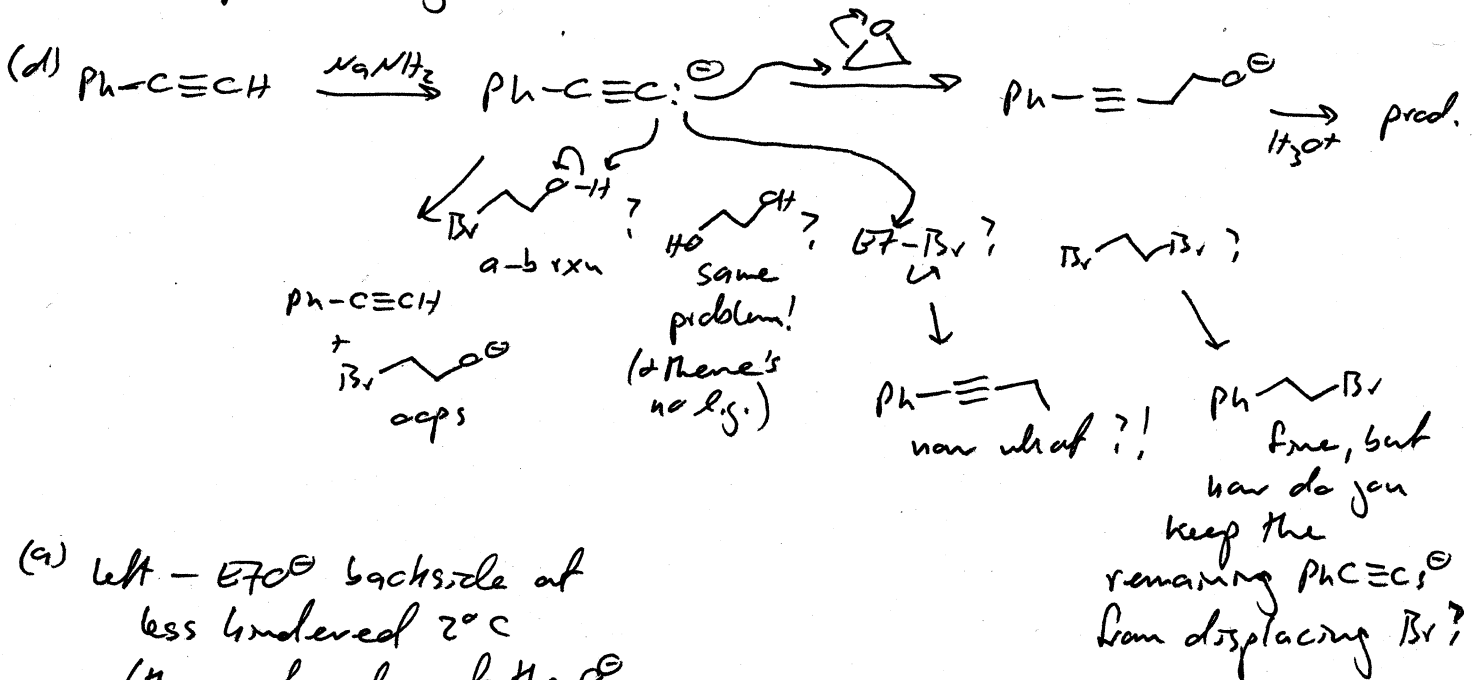 (d) Ph–C≡CH NaNH2 Ph–C≡C:⊖ O Ph–≡ O⊖ H3O+ prod.
Br O–H ?
a–b rxn
Ph–C≡CH
+
Br O⊖
oops
HO OH ?
same
problem!
(& there's
no l.g.)
Et–Br ?
Ph–≡
now what ?!
Br Br ?
Ph Br
fine, but
how do you
keep the
remaining PhC≡C:⊖
from displacing Br?
(a) left – EtO⊖ backside at
less hindered 2° C